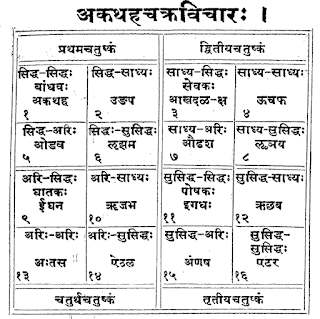 अकथहचक्रविचारः ।
प्रथमचतुष्कं द्वितीयचतुष्कं
सिद्ध-सिद्धः सिद्ध-साध्यः साध्य-सिद्धः साध्य-साध्यः
बांधवः सेवकः
अकथह उङप आखदळ-क्ष ऊचफ
१ २ ३ ४
सिद्ध-अरिः सिद्धः-सुसिद्धः साध्य-अरिः साध्य-सुसिद्धः
ओडव लृझम औढश लॄञय
५ ६ ७ ८
अरि-सिद्धः अरि-साध्यः सुसिद्ध-सिद्धः सुसिद्ध-साध्यः
घातकः पोषकः
ईघन ऋजभ इगधः ऋछब
९ १० ११ १२
अरिः-अरिः अरिः-सुसिद्धः सुसिद्ध-अरिः सुसिद्ध-
सुसिद्धः
अःतस ऐठल अंणष एटर
१३ १४ १५ १६
चतुर्थचतुष्कं तृतीयचतुष्कं